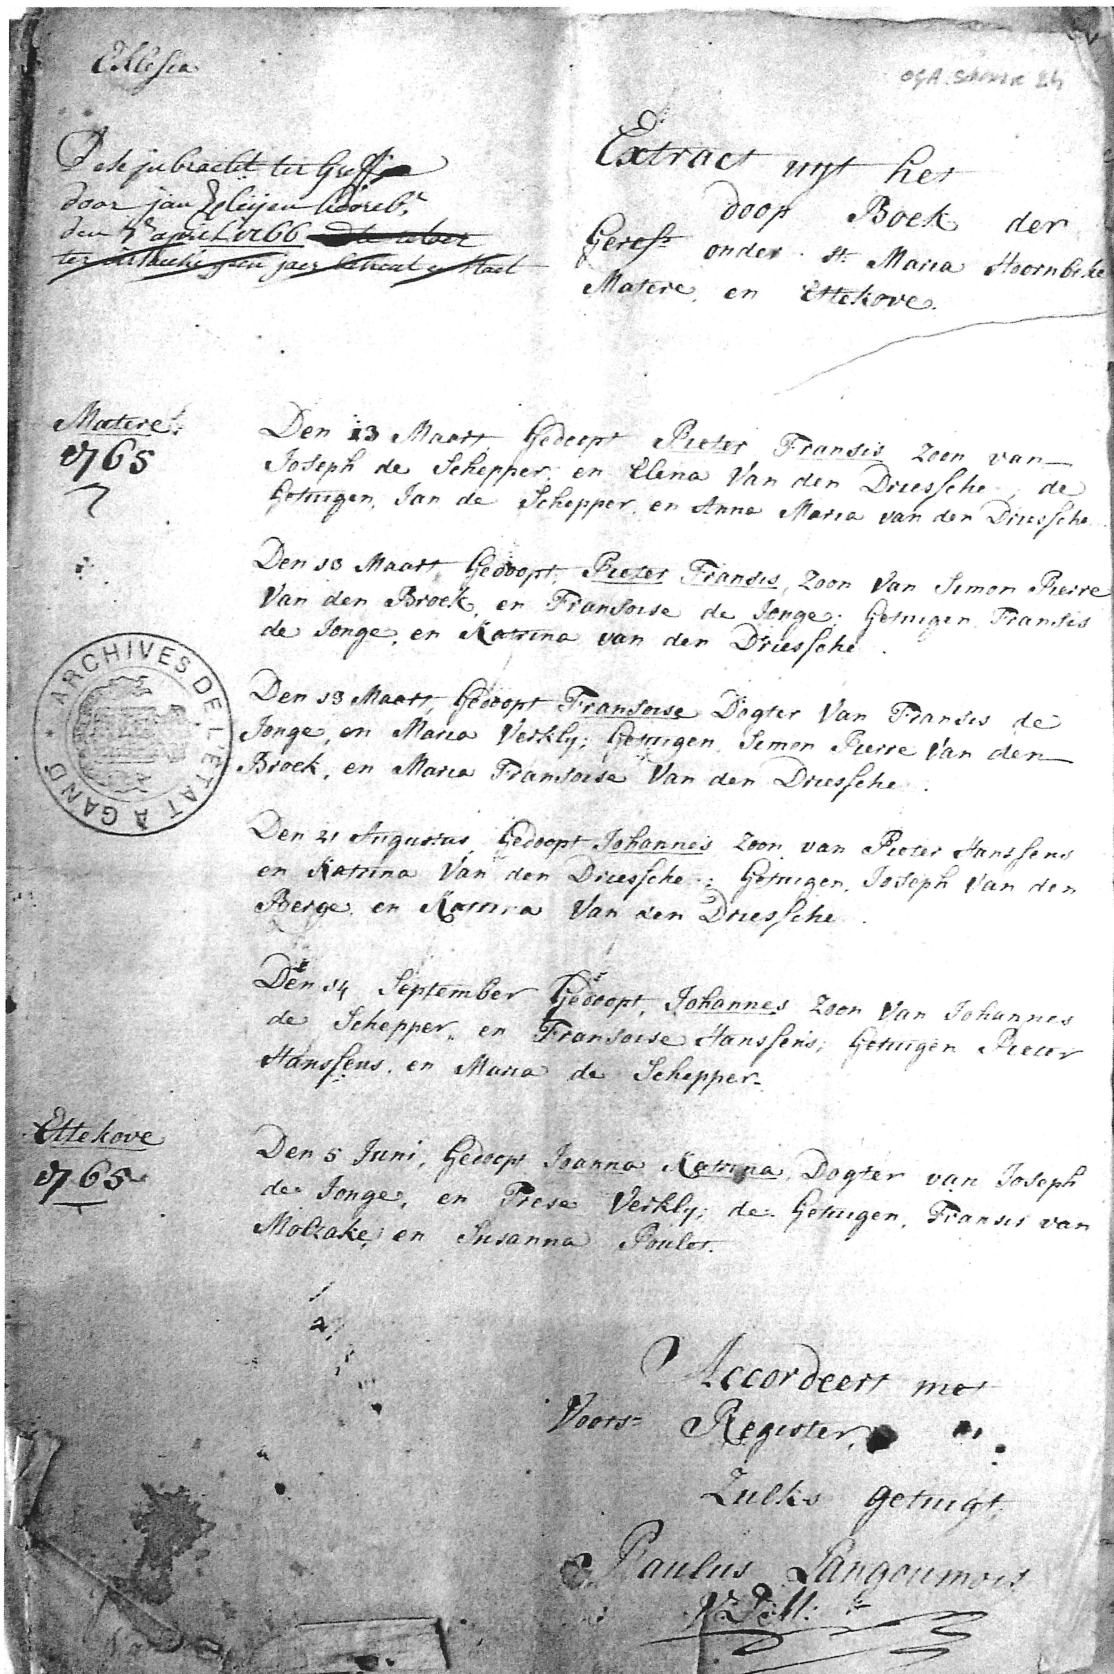 Ecclesia
OGA. Schorre 24
door jan
den 7e april 1766
Extract uyt het
doop Boek der
Gerefde onder St. Maria Hoornbeke
Matere, en Ettekove.
Matere
1765
Den 13 Maart, Gedoopt Pieter Fransis zoon van
Joseph de Schepper, en Elena Van den Driessche, de
Getuigen, Jan de Schepper, en Anna Maria van den Driessche
Den 13 Maart, Gedoopt, Pieter Fransis, zoon van Simon Pierre
Van den Broek, en Fransoise de Jonge; Getuigen, Fransis
de Jonge, en Katrina van den Driessche.
ARCHIVES DE L'ETAT À GAND
Den 13 Maart, Gedoopt Fransoise Dogter Van Fransis de
Jonge, en Maria Verkly; Getuigen, Simon Pierre Van den
Broek, en Maria Fransoise Van den Driessche.
Den 21 Augustus, Gedoopt Johannes zoon van Pieter Hanssens
en Katrina Van den Driessche; Getuigen, Joseph Van den
Berge, en Katrina Van den Driessche.
Den 14 September Gedoopt, Johannes zoon Van Johannes
de Schepper, en Fransoise Hanssens; Getuigen Pieter
Hanssens, en Maria de Schepper.
Ettekove
1765
Den 5 Juni, Gedoopt Joanna Katrina, Dogter van Joseph
de Jonge, en Trese Verkly; de Getuigen, Fransis van
Molzake, en Susanna Poulet.
Accordeert met
Voors= Register,
Zulks getuigt,
Paulus Langoumois